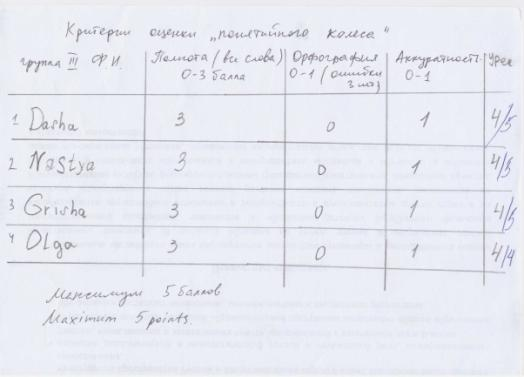 Критерии оценки „понятийного колеса"
группа III Ф.И. Полнота (все слова) 0-3 балла Орфография 0-1 (ошибки Аккуратность 0-1 Урок
1 Dasha 3 0 1 4/5
2 Nastya 3 0 1 4/5
3 Grisha 3 0 1 4/5
4 Olga 3 0 1 4/4
Максимум 5 баллов
Maximum 5 points.